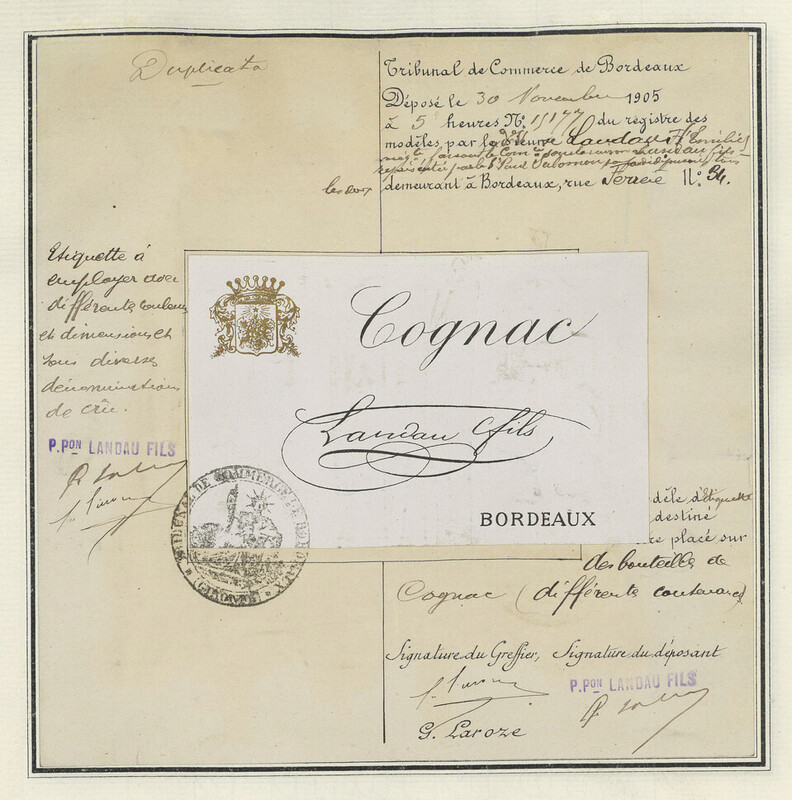 Duplicata
Tribunal de Commerce de Bordeaux
Déposé le 30 Novembre 1905
à 5 heures No. 15177 du registre des
modèles par la Veuve Landau
demeurant à Bordeaux, rue Ferrère No. 54.
Etiquette à
employer avec
différentes couleurs
et dimensions et
sous diverses
dénominations
de crû.
P.PON LANDAU FILS
Cognac
Landau Fils
BORDEAUX
TRIBUNAL DE COMMERCE DE BORDEAUX
(GIRONDE)
dèle d'étiquette
destiné
re placé sur
des bouteilles de
Cognac (différentes contenances)
Signature du Greffier, Signature du déposant
P.PON LANDAU FILS
G. Laroze